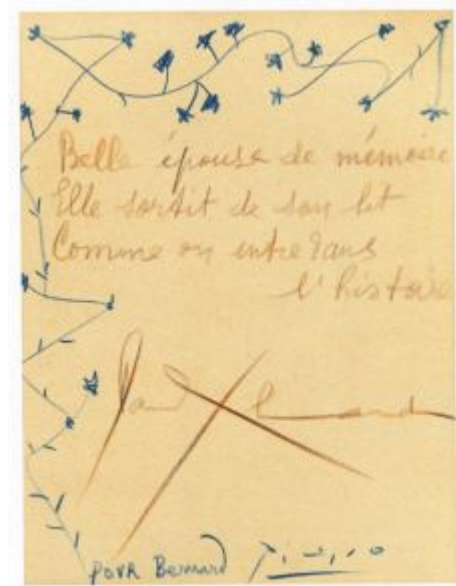 Belle épouse de mémoire
Elle sortit de son lit
Comme on entre dans
l'histoire
Paul Eluard
POUR Bernard Picasso